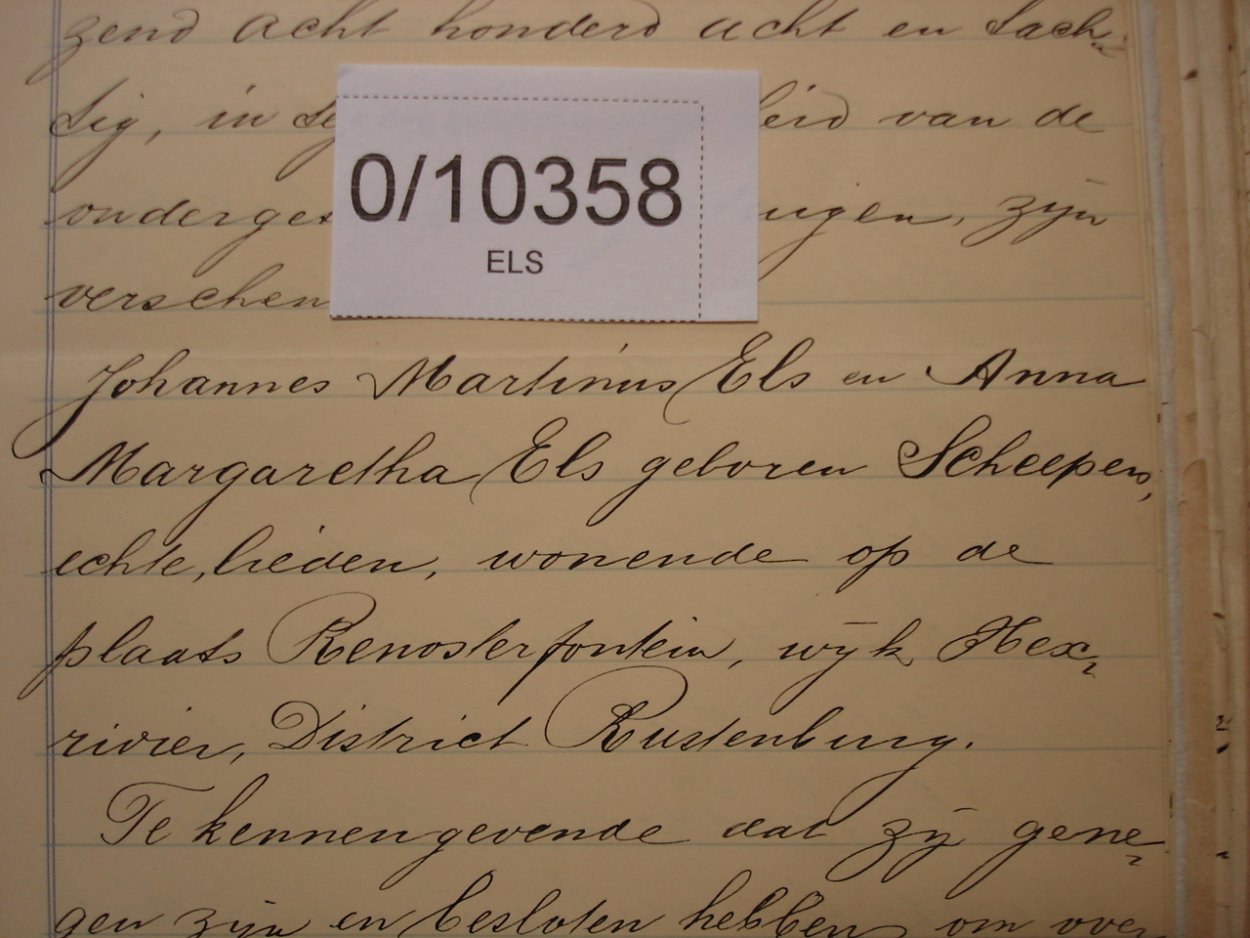 zend acht honderd acht en tach-
tig, in te heid van de
onderget uigen, zijn
verschen
0/10358
ELS
Johannes Martinus Els en Anna
Margaretha Els geboren Scheepers,
echte,lieden, wonende op de
plaats Renosterfontein, wijk Hex-
rivier, District Rustenburg.
Te kennen gevende dat zij gene-
gen zijn en besloten hebben om over